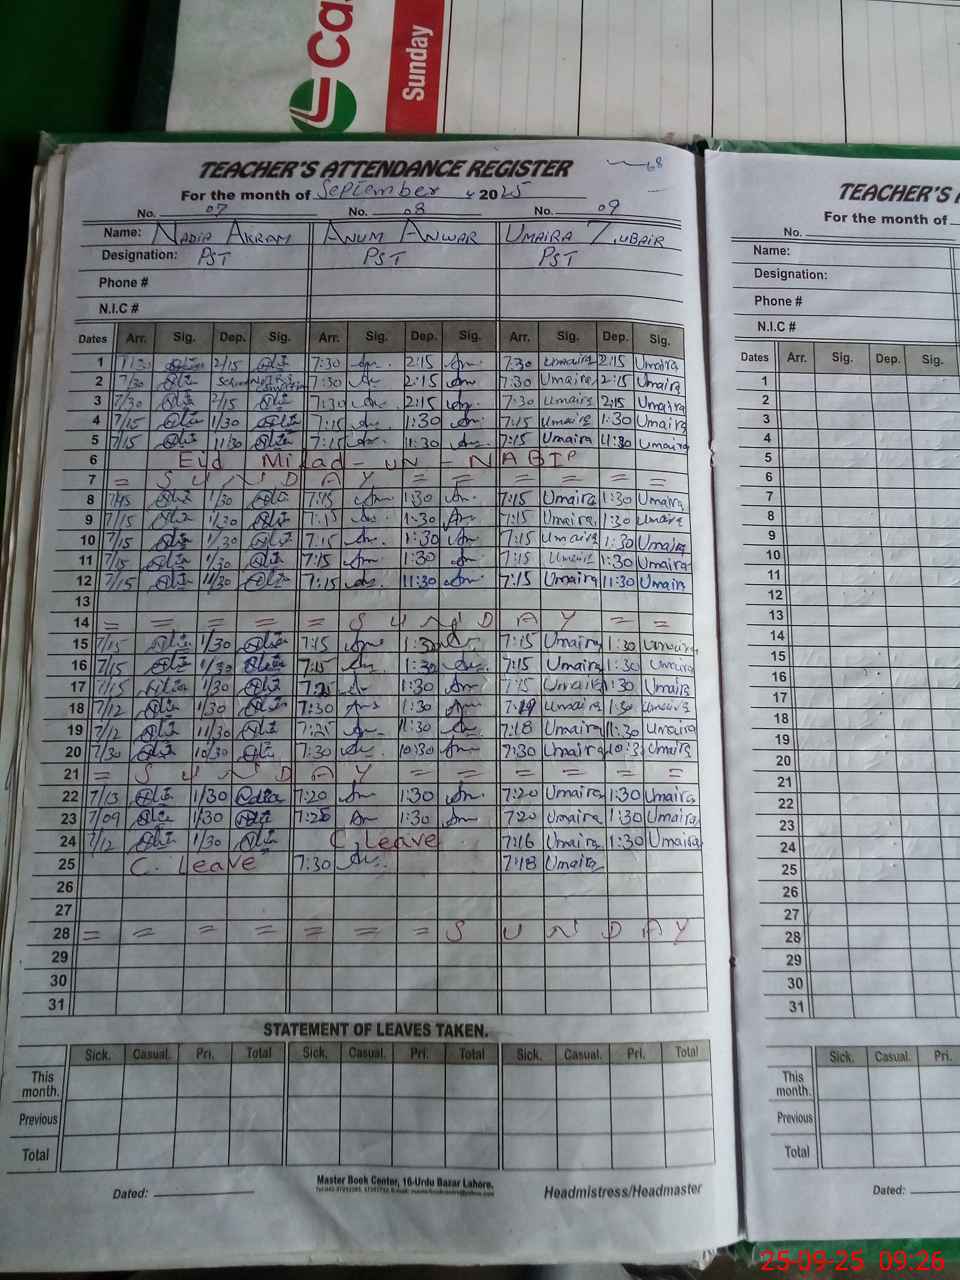 Cas
Sunday
TEACHER'S ATTENDANCE REGISTER
For the month of September 2025
No. 07 No. 08 No. 09
Name: NADIA AKRAM ANUM ANWAR UMAIRA ZUBAIR
Designation: PST PST PST
Phone #
N.I.C #
Dates Arr. Sig. Dep. Sig. Arr. Sig. Dep. Sig. Arr. Sig. Dep. Sig.
1 7/30 2/15 7:30 2:15 7:30 Umaira 2:15 Umaira
2 7/30 7:30 2:15 7:30 Umaira 2:15 Umaira
3 7/30 2/15 7:30 2:15 7:30 Umaira 2:15 Umaira
4 7/15 1/30 7:15 1:30 7:15 Umaira 1:30 Umaira
5 7/15 11/30 7:15 11:30 7:15 Umaira 11:30 Umaira
6 Eid Milad-un-NABI
7 = SUNDAY = = = = = =
8 7/15 1/30 7:15 1:30 7:15 Umaira 1:30 Umaira
9 7/15 1/30 7:15 1:30 7:15 Umaira 1:30 Umaira
10 7/15 1/30 7:15 1:30 7:15 Umaira 1:30 Umaira
11 7/15 1/30 7:15 1:30 7:15 Umaira 1:30 Umaira
12 7/15 11/30 7:15 11:30 7:15 Umaira 11:30 Umaira
13
14 = = = = = SUNDAY = =
15 7/15 1/30 7:15 1:30 7:15 Umaira 1:30 Umaira
16 7/15 1/30 7:15 1:30 7:15 Umaira 1:30 Umaira
17 7/15 1/30 7:25 1:30 7:15 Umaira 1:30 Umaira
18 7/12 1/30 7:30 1:30 Umaira 1:30 Umaira
19 7/12 11/30 7:25 11:30 7:18 Umaira 11:30 Umaira
20 7/30 10/30 7:30 10:30 7:30 Umaira 10:3 Umaira
21 = SUNDAY = = = = = =
22 7/13 1/30 7:20 1:30 7:20 Umaira 1:30 Umaira
23 7/09 1/30 7:25 1:30 7:20 Umaira 1:30 Umaira
24 7/12 1/30 C. Leave 7:16 Umaira 1:30 Umaira
25 C. Leave 7:30 7:18 Umaira
26
27
28 = = = = = = = SUNDAY
29
30
31
STATEMENT OF LEAVES TAKEN.
Sick. Casual. Pri. Total Sick. Casual. Pri. Total Sick. Casual. Pri. Total
This month.
Previous
Total
Dated:
Master Book Center, 16-Urdu Bazar Lahore.
Headmistress/Headmaster
TEACHER'S
For the month of
No.
Name:
Designation:
Phone #
N.I.C #
Dates Arr. Sig. Dep. Sig.
1
2
3
4
5
6
7
8
9
10
11
12
13
14
15
16
17
18
19
20
21
22
23
24
25
26
27
28
29
30
31
Sick. Casual. Pri.
This month.
Previous
Total
Dated:
25-09-25 09:26